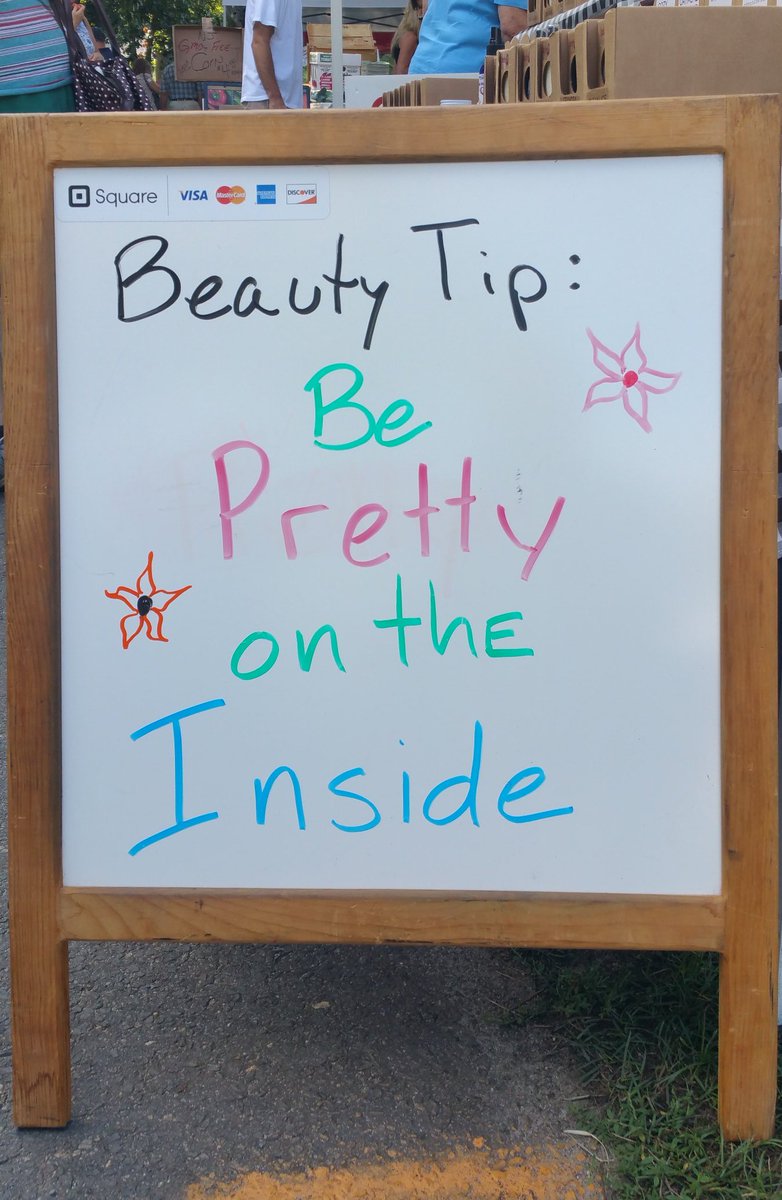 GMO Free
Corn
Square VISA MasterCard AMERICAN EXPRESS DISCOVER
Beauty Tip:
Be
Pretty
on the
Inside